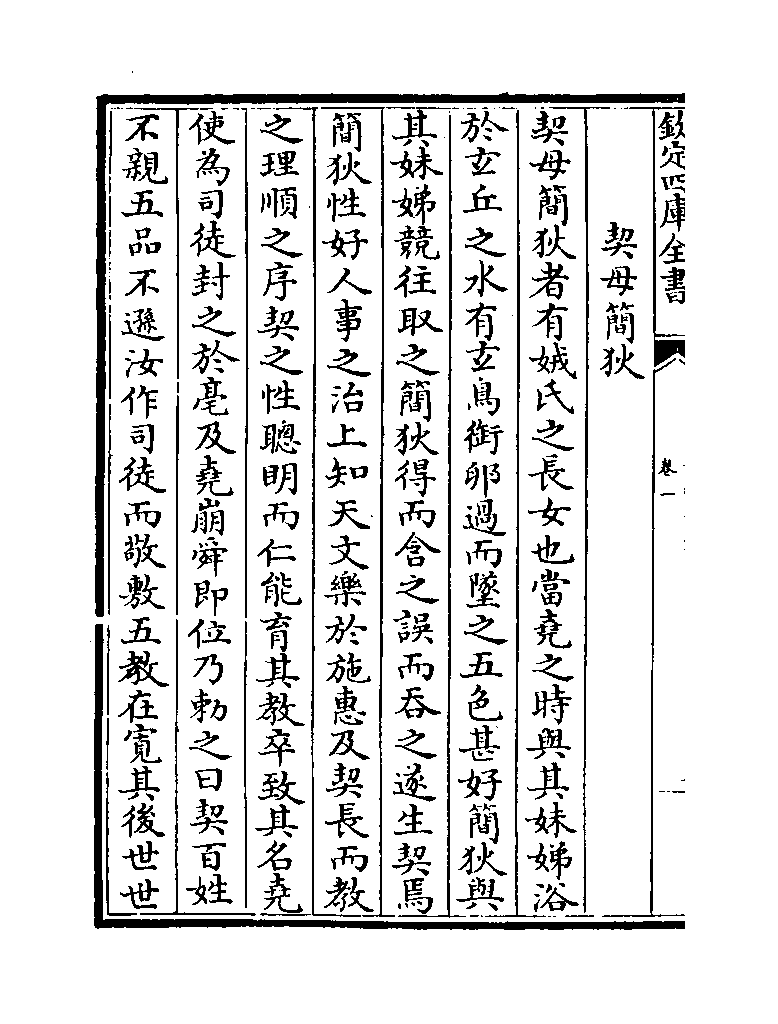 欽定四庫全書
卷一
契母簡狄
契母簡狄者有娀氏之長女也當堯之時與其妹娣浴
於玄丘之水有玄鳥銜卵過而墜之五色甚好簡狄與
其妹娣競往取之簡狄得而含之誤而吞之遂生契焉
簡狄性好人事之治上知天文樂於施惠及契長而教
之理順之序契之性聰明而仁能育其教卒致其名堯
使為司徒封之於亳及堯崩舜即位乃勅之曰契百姓
不親五品不遜汝作司徒而敬敷五教在寛其後世世